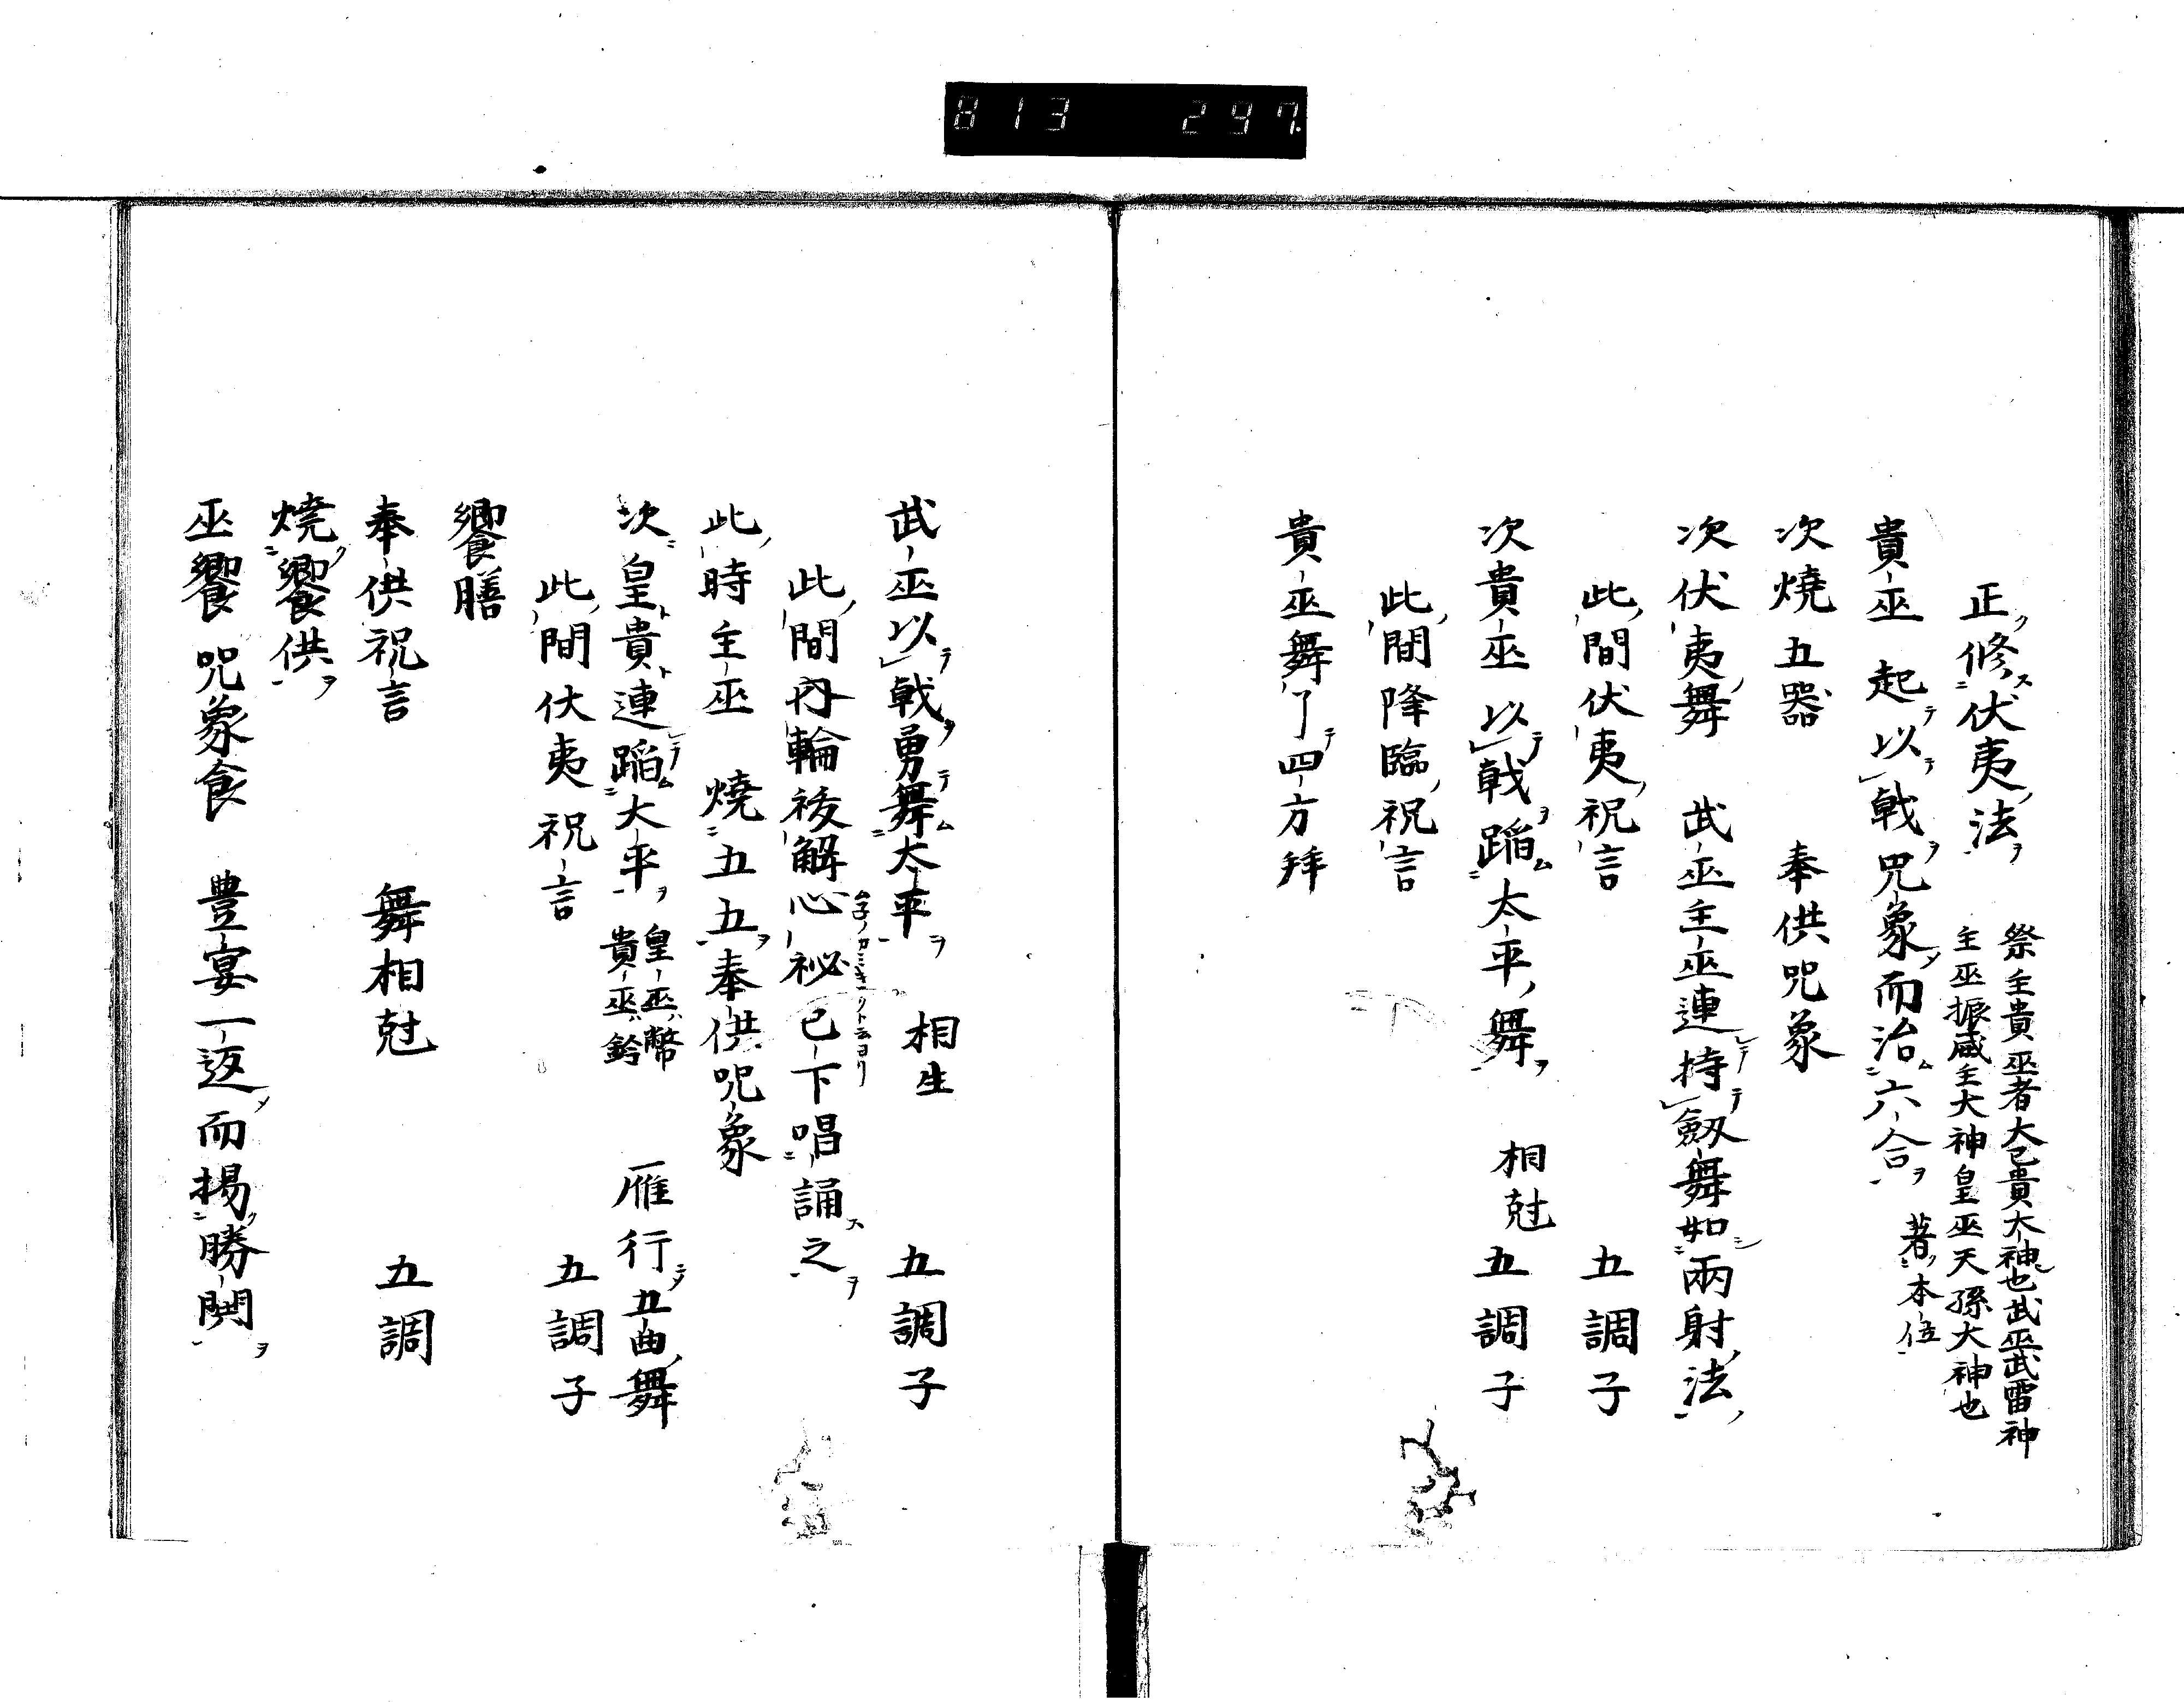 813 297.
正修伏夷法 祭主貴巫者大己貴大神也武巫武雷神
主巫振威主大神皇巫天孫大神也
貴巫 起以戟咒象而治六合 著本位
次燒五器 奉供咒象
次伏夷舞 武巫主巫連持劔舞如兩射法
此間伏夷祝言 五調子
次貴巫以戟蹈太平舞 相尅 五調子
此間降臨祝言
貴巫舞了四方拜
武巫以戟勇舞太平 相生 五調子
此間丹輪後解心祕已下唱誦之
此時主巫 燒五五奉供咒象
次皇貴連蹈大平 皇巫幣 貴巫鈴 雁行五曲舞
此間伏夷祝言 五調子
饗膳
奉供祝言 舞相尅 五調
燒饗供
巫饗咒象食 豊宴一返而揚勝鬨